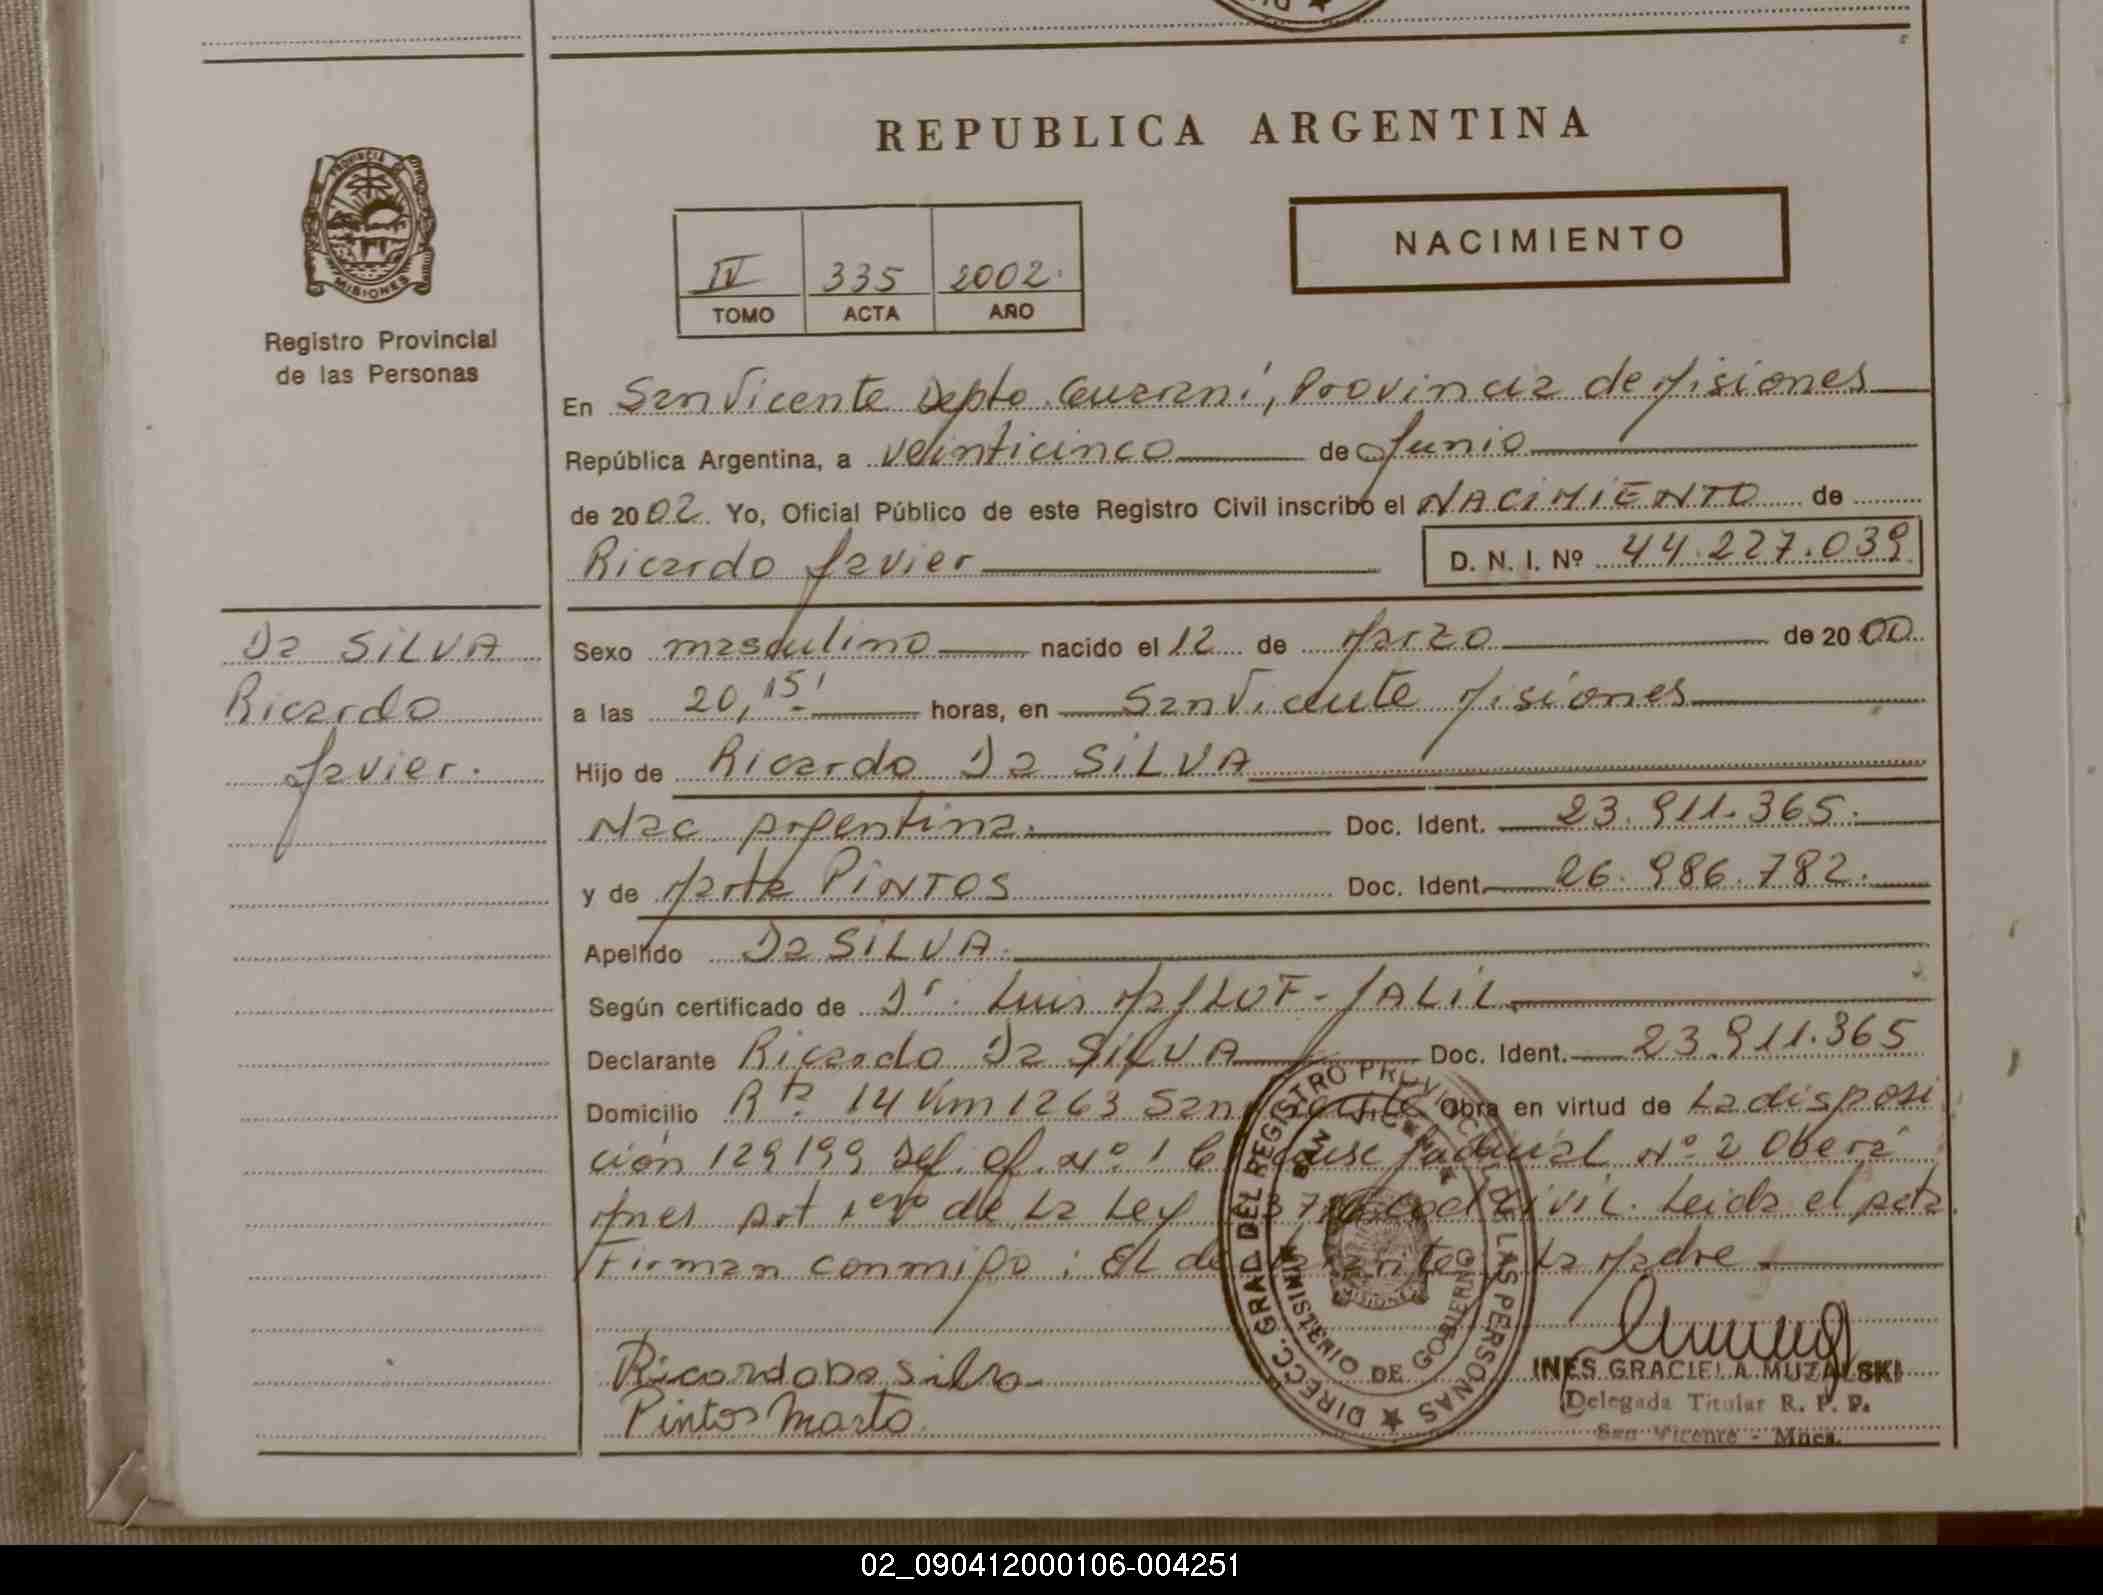 REPUBLICA ARGENTINA
PROVINCIA DE MISIONES
Registro Provincial
de las Personas
IV 335 2002
TOMO ACTA AÑO
NACIMIENTO
En San Vicente Depto Guaraní, Provincia de Misiones
República Argentina, a veinticinco de Junio
de 2002 Yo, Oficial Público de este Registro Civil inscribo el NACIMIENTO de
Ricardo Javier D. N. I. Nº 44.227.039
Da SILVA
Ricardo
Javier.
Sexo masculino nacido el 12 de Marzo de 2000
a las 20,15' horas, en San Vicente Misiones
Hijo de Ricardo Da SILVA
Nac Argentina. Doc. Ident. 23.911.365.
y de Marta PINTOS Doc. Ident. 26.986.782.
Apellido Da SILVA.
Según certificado de Dr. Luis JALIL
Declarante Ricardo Da SILVA Doc. Ident. 23.911.365
Domicilio Rta. 14 Km 1263 San Vicente Obra en virtud de La disposi
ción 129199 Def. of. Nº 1 Judicial Nº 2 Oberá
Mnes Art 1ero de La Ley Civil. Leida el Acta
Firman conmigo: El declarante La Madre
DIRECC. GRAL DEL REGISTRO PROVINCIAL DE LAS PERSONAS
MINISTERIO DE GOBIERNO
MISIONES
Ricardo Da Silva
Pintos Marta.
INES GRACIELA MUZALSKI
Delegada Titular R. P. P.
San Vicente - Mnes.
02_090412000106-004251